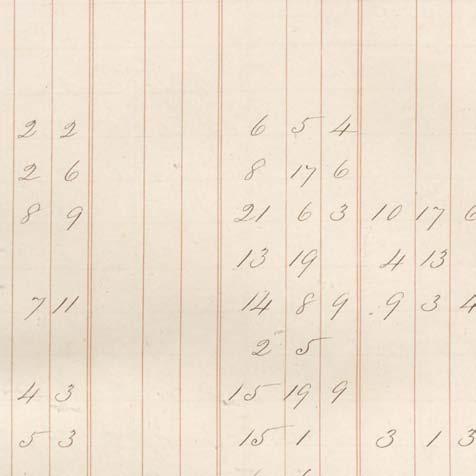 2 2 6 5 4
2 6 8 17 6
8 9 21 6 3 10 17 6
13 19 4 13
7 11 14 8 9 9 3 4
2 5
4 3 15 19 9
5 3 15 1 3 1 3